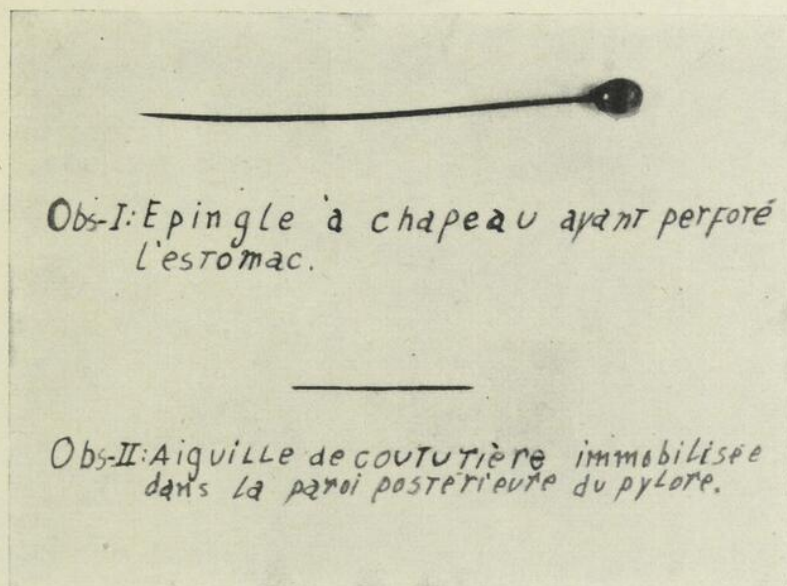 Obs-I: Epingle à chapeau ayant perforé
l'estomac.
Obs-II: Aiguille de couturière immobilisée
dans la paroi postérieure du pylore.